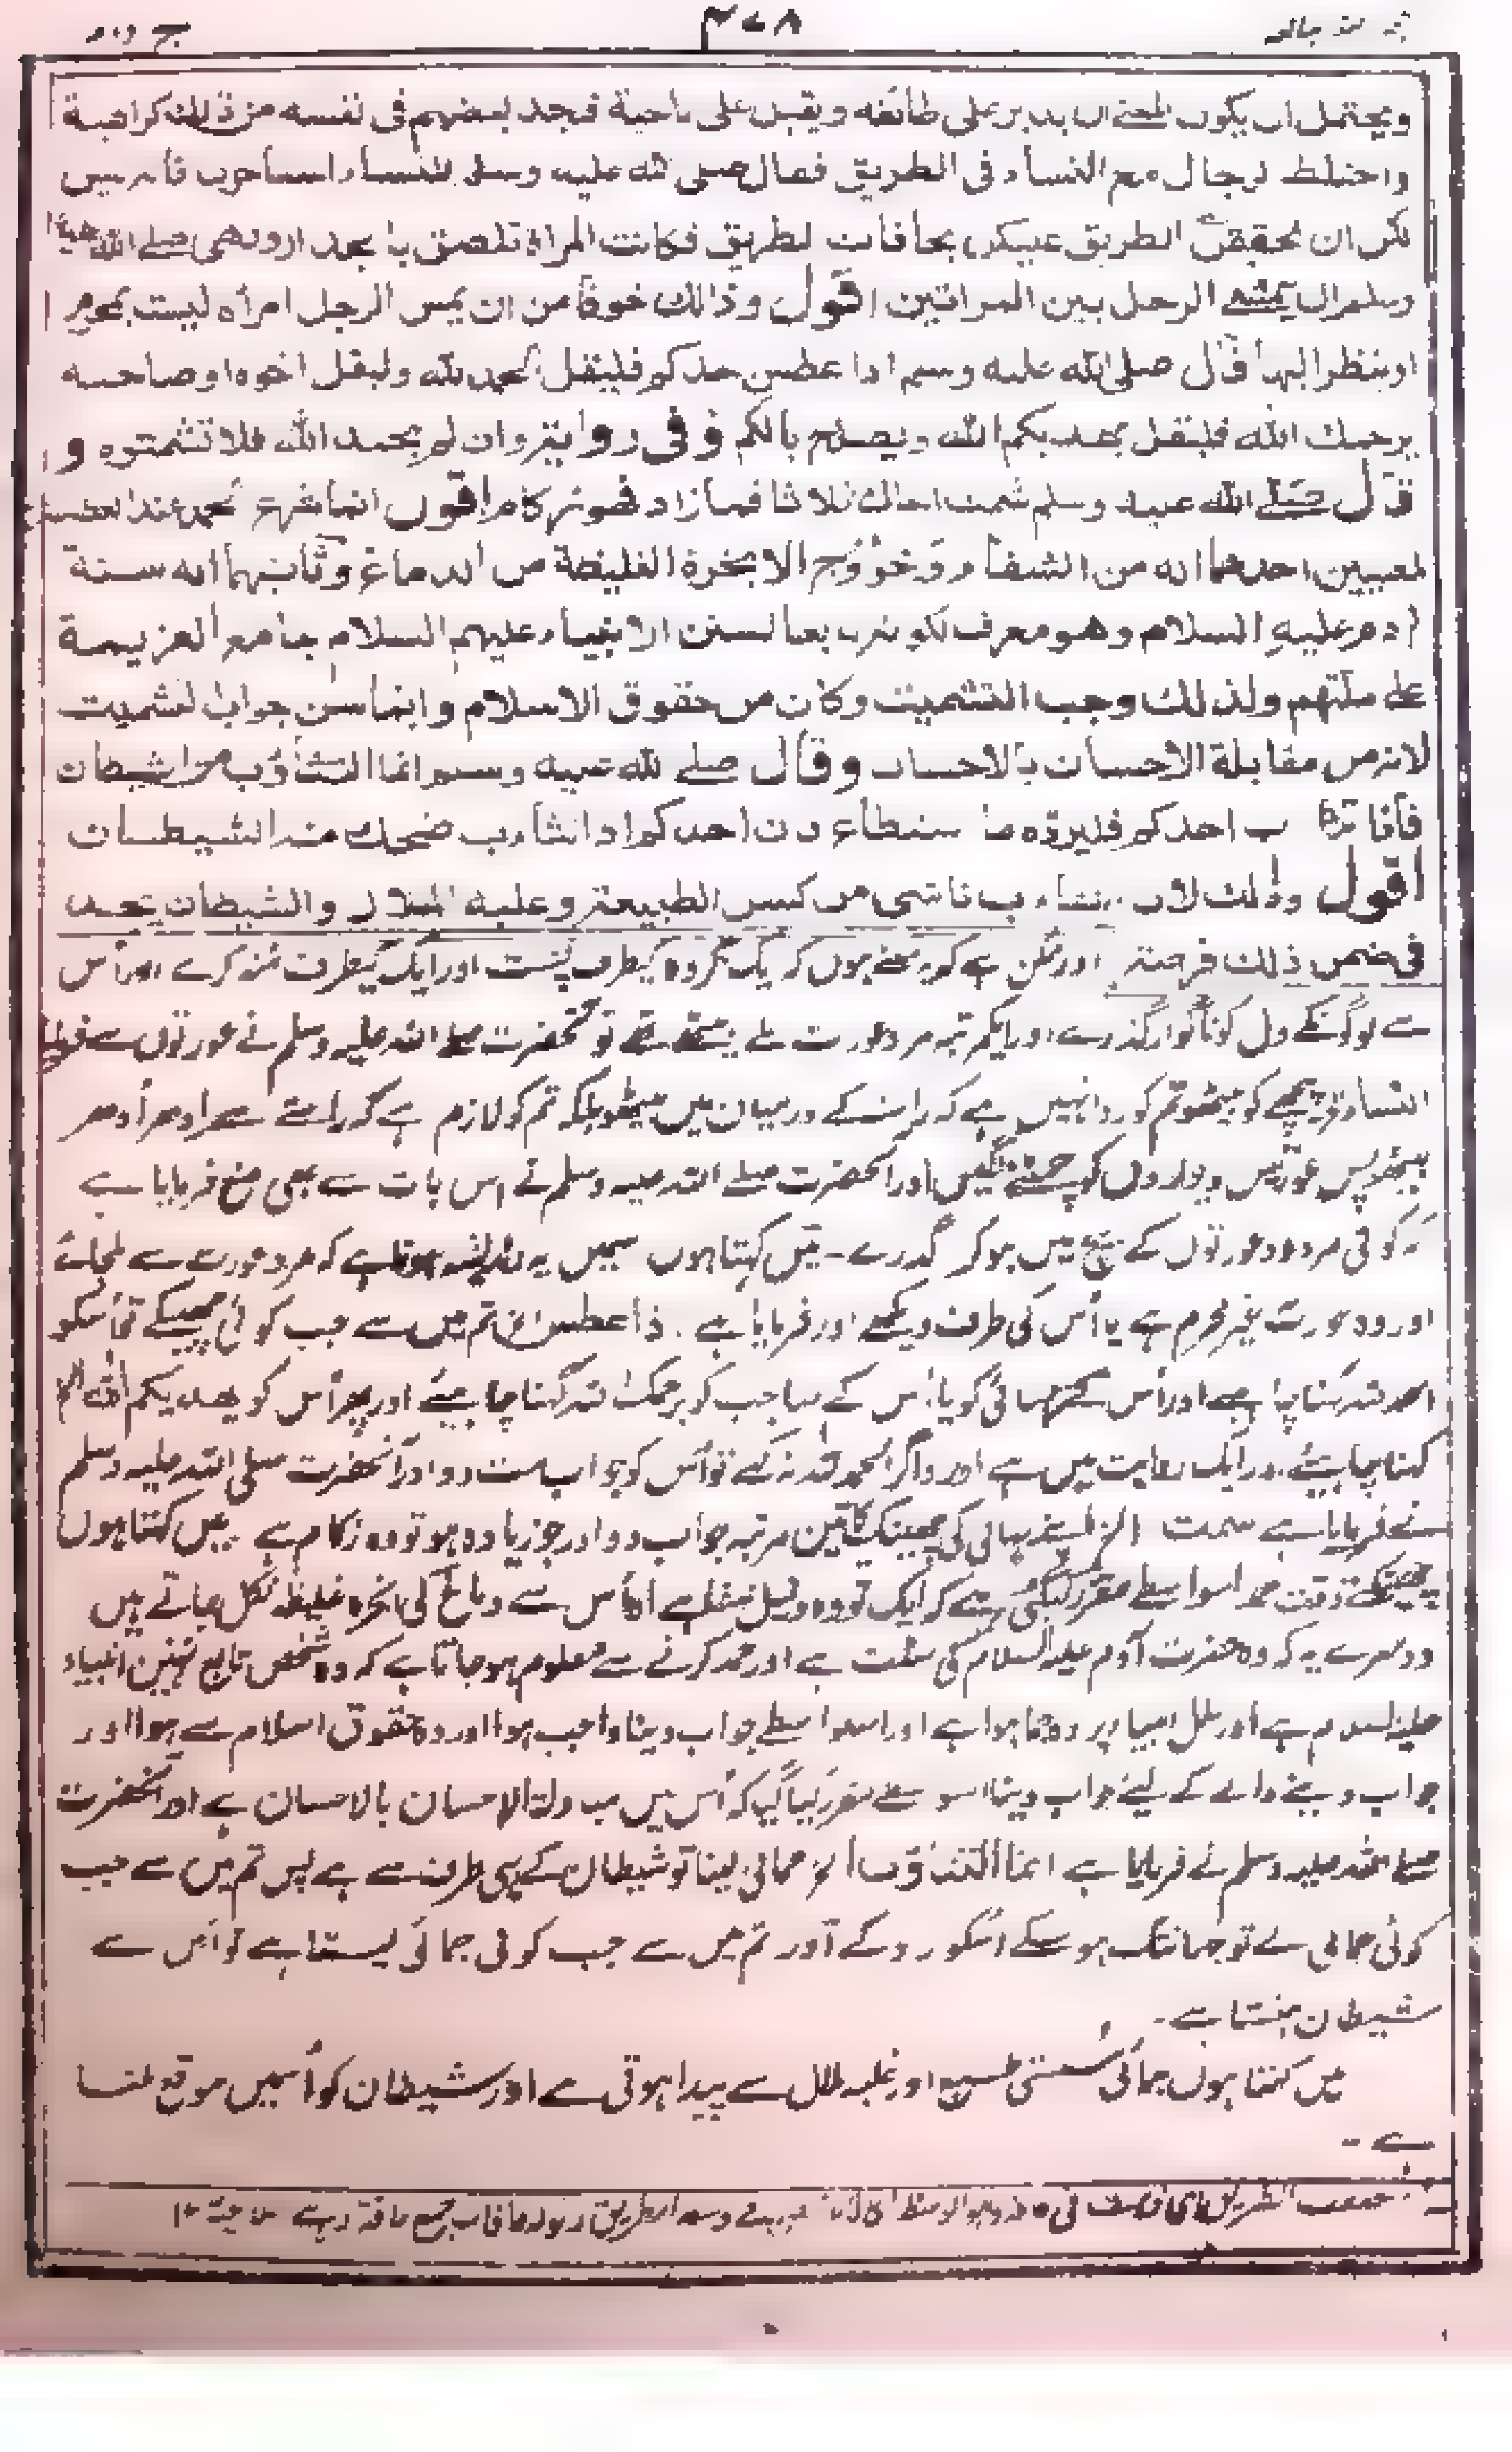 ۴۷۸
ويحتمل ان يكون المعنى ان يدبر على طائفة ويقبل على ناحية فيجد بعضهم في نفسه من ذلك كراهية
واختلط الرجال مع النساء في الطريق فقال صلى الله عليه وسلم للنساء استأخرن فانه ليس
لكن ان تحققن الطريق عليكن بحافات الطريق فكانت المرأة تلصق بالجدار ونهى صلے الله عليه
وسلم ان يمشے الرجل بين المرأتين اقول وذالك خوفا من ان يمس الرجل امرأة ليست بمحرم
او ينظر اليها قال صلى الله عليه وسلم اذا عطس احدكم فليقل الحمد لله وليقل اخوه او صاحبه
يرحمك الله فليقل يهديكم الله ويصلح بالكم وفى رواية وان لم يحمد الله فلا تشمتوه و
قال صلے الله عليه وسلم شمت اخاك ثلاثا فما زاد فهو زكام اقول انما شرع الحمد عند العطسة
لمعنيين احدهما انه من الشفاء وخروج الابخرة الغليظة من الدماغ وثانيهما انه سنة
ادم عليه السلام وهو معرف لكونه تابعا لسنن الانبياء عليهم السلام جامع العزيمة
على ملتهم ولذلك وجب التشميت وكان من حقوق الاسلام وانما سن جواب التشميت
لانه من مقابلة الاحسان بالاحسان وقال صلے الله عليه وسلم انما التثاؤب من الشيطان
فاذا تثاءب احدكم فليرده ما استطاع فان احدكم اذا تثاءب ضحك منه الشيطان
اقول وذلك لان التثاءب ناشى من كسل الطبيعة وغلبة الملال والشيطان يجد
فى ضمن ذلك فرصة اور ممکن ہے کہ یہ معنے ہوں کہ ایک گروہ کیطرف پشت اور ایک کیطرف منہ کرے اور اس
سے لوگونکے دل کو ناگوار گذرے اور ایکمرتبہ مرد عورت ملے بیٹھے تھے تو آنحضرت صلے اللہ علیہ وسلم نے عورتوں سے فرمایا
پیچھے کو بیٹھو تم کو روا نہیں ہے کہ راستہ کے درمیان میں بیٹھو بلکہ تم کو لازم ہے کہ راستے سے ادھر اودھر
بیٹھو پس عورتیں دیواروں کو چمٹنے لگیں اور آنحضرت صلے اللہ علیہ وسلم نے اس بات سے بھی منع فرمایا ہے
کہ کوئی مرد دو عورتوں کے بیچ میں ہو کر گذرے - میں کہتا ہوں اسمیں یہ اندیشہ ہوتا ہے کہ مرد عورت سے ملجائے
اور وہ عورت غیر محرم ہے یا اُس کی طرف دیکھے اور فرمایا ہے . اذا عطس الخ تم میں سے جب کوئی چھینکے تو اُسکو
الحمد للہ کہنا چاہیے اور اُس کے بھائی کو یا اُس کے صاحب کو یرحمک اللہ کہنا چاہیئے اور پھر اُس کو یھدیکم اللہ الخ
کہنا چاہیئے اور ایک روایت میں ہے اور اگر الحمد للہ نہ کہے تو اُس کو جواب مت دو اور آنحضرت صلی اللہ علیہ وسلم
نے فرمایا ہے شمت الخ اپنے بھائی کی چھینک کا تین مرتبہ جواب دو اور جو زیادہ ہو تو وہ زکام ہے . میں کہتا ہوں
چھینکتے وقت حمد اسواسطے مقرر کیگئی ہے کہ ایک تو وہ دلیل شفا ہے اور اُس سے دماغ کی ابخرہ غلیظہ نکل جاتے ہیں
دوسرے یہ کہ وہ حضرت آدم علیہ السلام کی سنت ہے اور حمد کرنے سے معلوم ہو جاتا ہے کہ وہ شخص تابع سنن انبیاء
علیہ السلام ہے اور ملل انبیا پر ہوا ہے اور اسواسطے جواب دینا واجب ہوا اور وہ حقوق اسلام سے ہوا اور
جواب دینے والے کے لیئے جواب دینا اسواسطے مقرر کیا گیا کہ اُس میں مبادلۃ الاحسان بالاحسان ہے اور آنحضرت
صلے اللہ علیہ وسلم نے فرمایا ہے انما التثاؤب الخ جمائی لینا تو شیطان کے ہی طرف سے ہے پس تم میں سے جب
کوئی جمائی لے تو جہانتک ہو سکے اُسکو روکے اور تم میں سے جب کوئی جمائی لیتا ہے تو اُس سے
شیطان ہنستا ہے -
میں کہتا ہوں جمائی سُستی طبیع اور غلبہ ملال سے پیدا ہوتی ہے اور شیطان کو اُسمیں موقع ملتا
ہے -